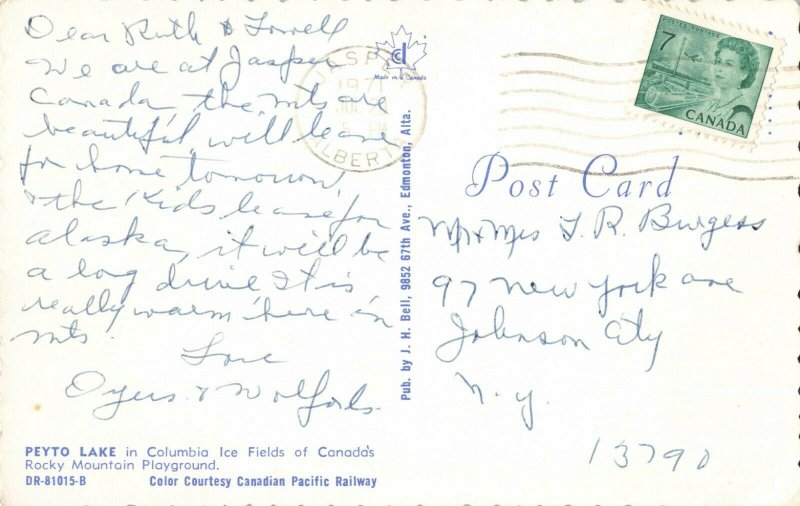 Dear Ruth & Lowell
We are at Jasper
Canada the mts are
beautiful, will leave
for home tomorrow,
& the Kids leave for
alaska, it will be
a long drive It is
really warm here in
mts.
Love
Oyers & Wolfords
PEYTO LAKE in Columbia Ice Fields of Canada's
Rocky Mountain Playground.
DR-81015-B Color Courtesy Canadian Pacific Railway
Pub. by J. H. Bell, 9852 67th Ave., Edmonton, Alta.
Made in Canada
JASPER
1971
ALBERTA
POSTES-POSTAGE
7
CANADA
Post Card
Mr & Mrs L. R. Burgess
97 New York ave
Johnson City
N.Y.
13790